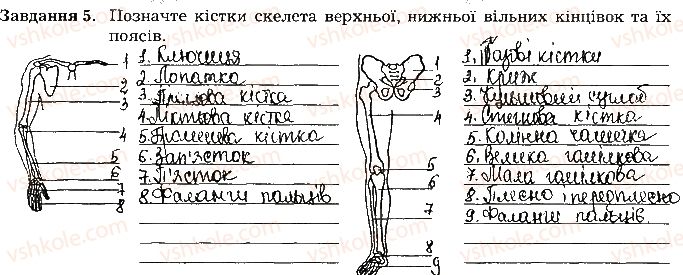 Завдання 5. Позначте кістки скелета верхньої, нижньої вільних кінцівок та їх
поясів.
1. Ключиця
2. Лопатка
3. Плічова кістка
4. Ліктьова кістка
5. Променева кістка
6. Зап'ясток
7. П'ясток
8. Фаланги пальців
1
2
3
4
5
6
7
8
1. Тазові кістки
2. Криж
3. Кульшовий суглоб
4. Стегнова кістка
5. Колінна чашечка
6. Велика гомілкова
7. Мала гомілкова
8. Плесно і передплесно
9. Фаланги пальців.
1
2
3
4
5
6
7
8
9
vshkole.com